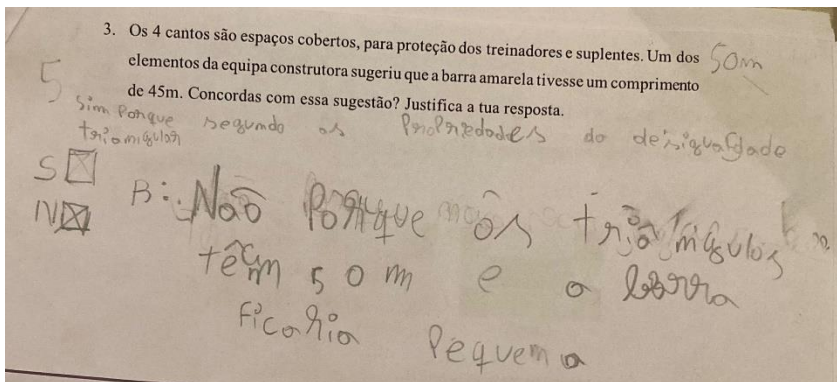 3. Os 4 cantos são espaços cobertos, para proteção dos treinadores e suplentes. Um dos 50m
elementos da equipa construtora sugeriu que a barra amarela tivesse um comprimento
de 45m. Concordas com essa sugestão? Justifica a tua resposta.
5
Sim Porque segundo as Propriedades da desigualdade
triamigular
S
N
R: Não Porque os triâmgulos
têm 50 m e a barra
ficaria Pequema